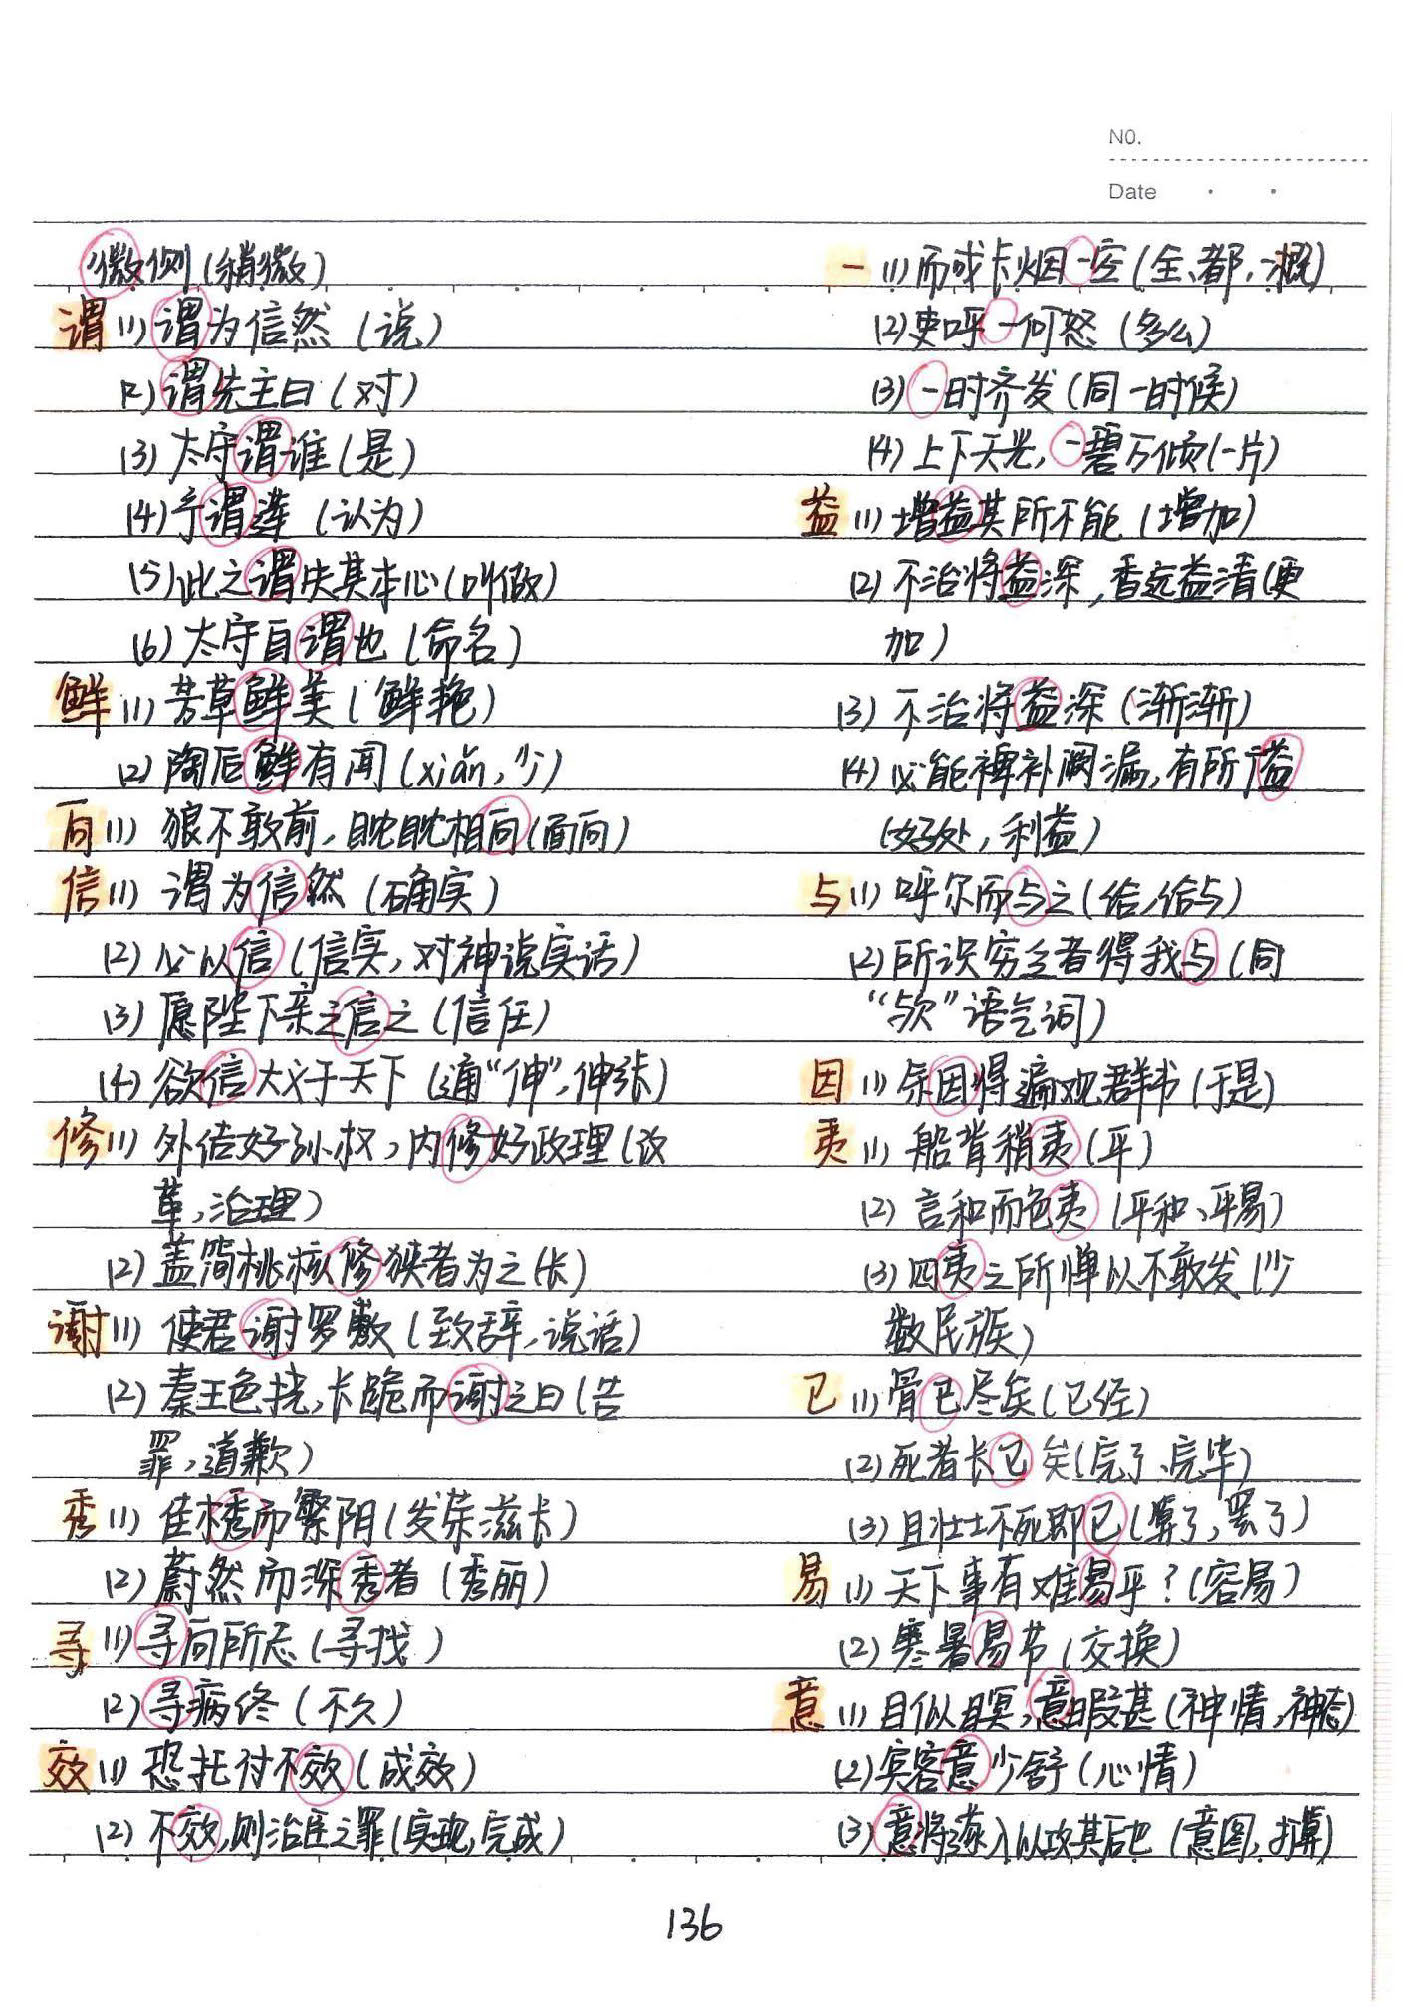 NO.
Date
微侧(稍微)
谓 (1) 谓为信然 (说)
(2) 谓先主曰 (对)
(3) 太守谓谁 (是)
(4) 予谓莲 (认为)
(5) 此之谓失其本心 (叫做)
(6) 太守自谓也 (命名)
鲜 (1) 芳草鲜美 (鲜艳)
(2) 陶后鲜有闻 (xiǎn, 少)
向 (1) 狼不敢前,眈眈相向 (面向)
信 (1) 谓为信然 (确实)
(2) 必以信 (信实, 对神说实话)
(3) 愿陛下亲之信之 (信任)
(4) 欲信大义于天下 (通“伸”,伸张)
修 (1) 外结好孙权,内修好政理 (改
革,治理)
(2) 盖简桃核修狭者为之 (长)
谢 (1) 使君谢罗敷 (致辞,说话)
(2) 秦王色挠,长跪而谢之曰 (告
罪,道歉)
秀 (1) 佳木秀而繁阴 (发荣滋长)
(2) 蔚然而深秀者 (秀丽)
寻 (1) 寻向所志 (寻找)
(2) 寻病终 (不久)
效 (1) 恐托付不效 (成效)
(2) 不效,则治臣之罪 (实现,完成)
一 (1) 而或长烟一空 (全、都、一概)
(2) 吏呼一何怒 (多么)
(3) 一时齐发 (同一时候)
(4) 上下天光,一碧万顷 (一片)
益 (1) 增益其所不能 (增加)
(2) 不治将益深,香远益清 (更
加)
(3) 不治将益深 (渐渐)
(4) 必能裨补阙漏,有所广益
(好处,利益)
与 (1) 呼尔而与之 (给,给与)
(2) 所识穷乏者得我与 (同
“欤”语气词)
因 (1) 余因得遍观群书 (于是)
夷 (1) 船背稍夷 (平)
(2) 言和而色夷 (平和、平易)
(3) 四夷之所惮以不敢发 (少
数民族)
已 (1) 骨已尽矣 (已经)
(2) 死者长已矣 (完了、完毕)
(3) 且壮士不死即已 (算了,罢了)
易 (1) 天下事有难易乎? (容易)
(2) 寒暑易节 (交换)
意 (1) 目似瞑,意暇甚 (神情,神态)
(2) 宾客意少舒 (心情)
(3) 意将隧入以攻其后也 (意图,打算)
136